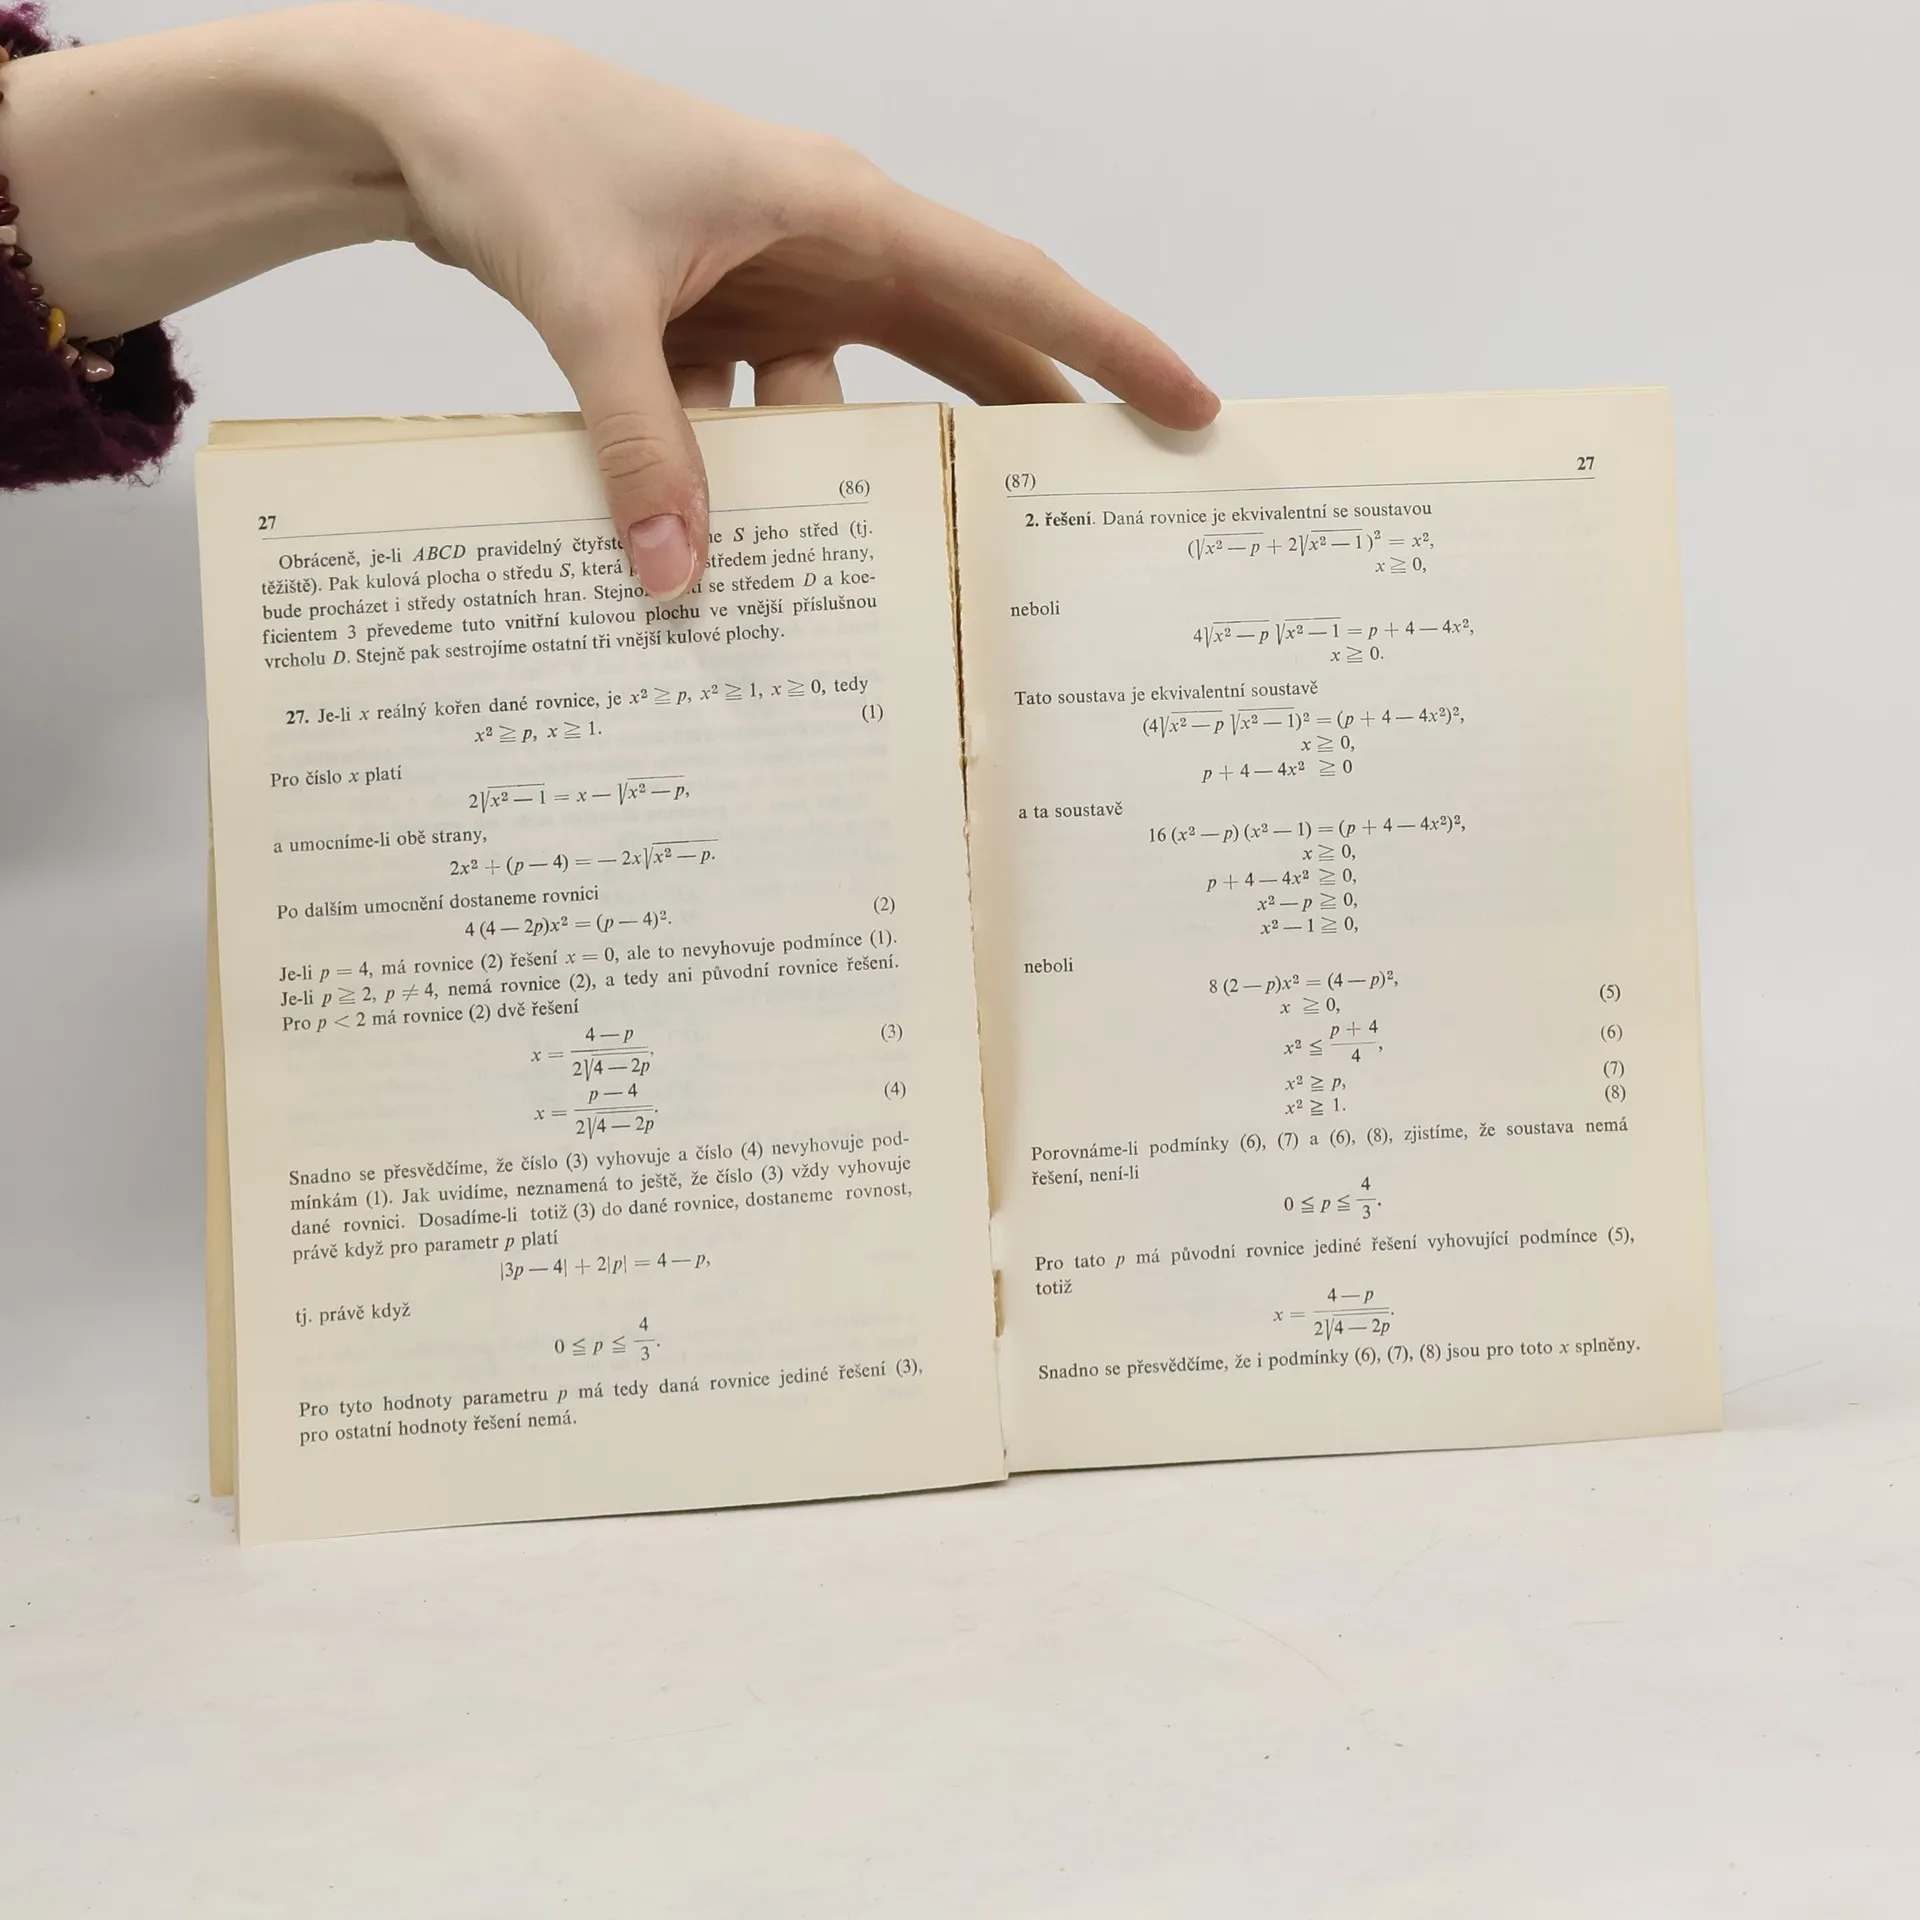 27 (86)
Obráceně, je-li ABCD pravidelný S jeho střed (tj.
těžiště). Pak kulová plocha o středu S, která středem jedné hrany,
bude procházet i středy ostatních hran. se středem D a koe-
ficientem 3 převedeme tuto vnitřní kulovou plochu ve vnější příslušnou
vrcholu D. Stejně pak sestrojíme ostatní tři vnější kulové plochy.
27. Je-li x reálný kořen dané rovnice, je x² ≧ p, x² ≧ 1, x ≧ 0, tedy
x² ≧ p, x ≧ 1. (1)
Pro číslo x platí
2√(x² — 1) = x — √(x² — p),
a umocníme-li obě strany,
2x² + (p — 4) = — 2x√(x² — p).
Po dalším umocnění dostaneme rovnici
4 (4 — 2p)x² = (p — 4)². (2)
Je-li p = 4, má rovnice (2) řešení x = 0, ale to nevyhovuje podmínce (1).
Je-li p ≧ 2, p ≠ 4, nemá rovnice (2), a tedy ani původní rovnice řešení.
Pro p < 2 má rovnice (2) dvě řešení
x = (4 — p)/(2√(4 — 2p)), (3)
x = (p — 4)/(2√(4 — 2p)). (4)
Snadno se přesvědčíme, že číslo (3) vyhovuje a číslo (4) nevyhovuje pod-
mínkám (1). Jak uvidíme, neznamená to ještě, že číslo (3) vždy vyhovuje
dané rovnici. Dosadíme-li totiž (3) do dané rovnice, dostaneme rovnost,
právě když pro parametr p platí
|3p — 4| + 2|p| = 4 — p,
tj. právě když
0 ≦ p ≦ 4/3.
Pro tyto hodnoty parametru p má tedy daná rovnice jediné řešení (3),
pro ostatní hodnoty řešení nemá.
(87) 27
2. řešení. Daná rovnice je ekvivalentní se soustavou
(√(x² — p) + 2√(x² — 1))² = x²,
x ≧ 0,
neboli
4√(x² — p) √(x² — 1) = p + 4 — 4x²,
x ≧ 0.
Tato soustava je ekvivalentní soustavě
(4√(x² — p) √(x² — 1))² = (p + 4 — 4x²)²,
x ≧ 0,
p + 4 — 4x² ≧ 0
a ta soustavě
16 (x² — p) (x² — 1) = (p + 4 — 4x²)²,
x ≧ 0,
p + 4 — 4x² ≧ 0,
x² — p ≧ 0,
x² — 1 ≧ 0,
neboli
8 (2 — p)x² = (4 — p)²,
x ≧ 0, (5)
x² ≦ (p + 4)/4, (6)
x² ≧ p, (7)
x² ≧ 1. (8)
Porovnáme-li podmínky (6), (7) a (6), (8), zjistíme, že soustava nemá
řešení, není-li
0 ≦ p ≦ 4/3.
Pro tato p má původní rovnice jediné řešení vyhovující podmínce (5),
totiž
x = (4 — p)/(2√(4 — 2p)).
Snadno se přesvědčíme, že i podmínky (6), (7), (8) jsou pro toto x splněny.